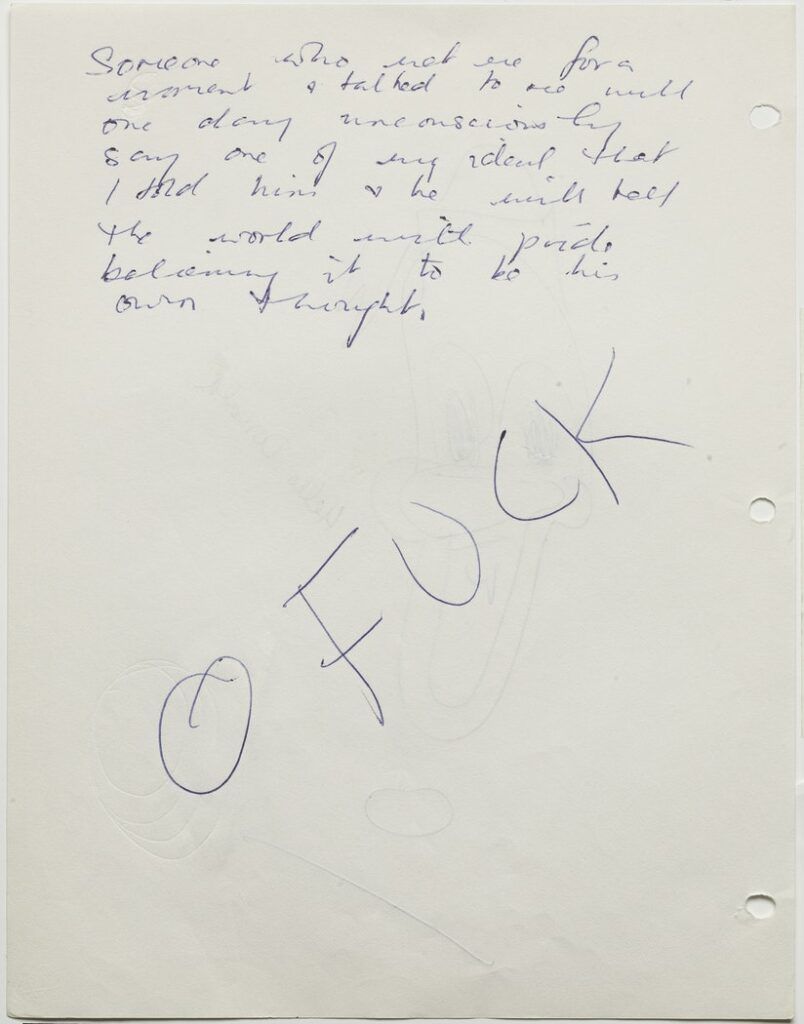 Someone who met me for a
moment & talked to me will
one day unconsciously
say one of my ideal that
I told him & he will tell
the world with pride
believing it to be his
own thought.
O FUCK